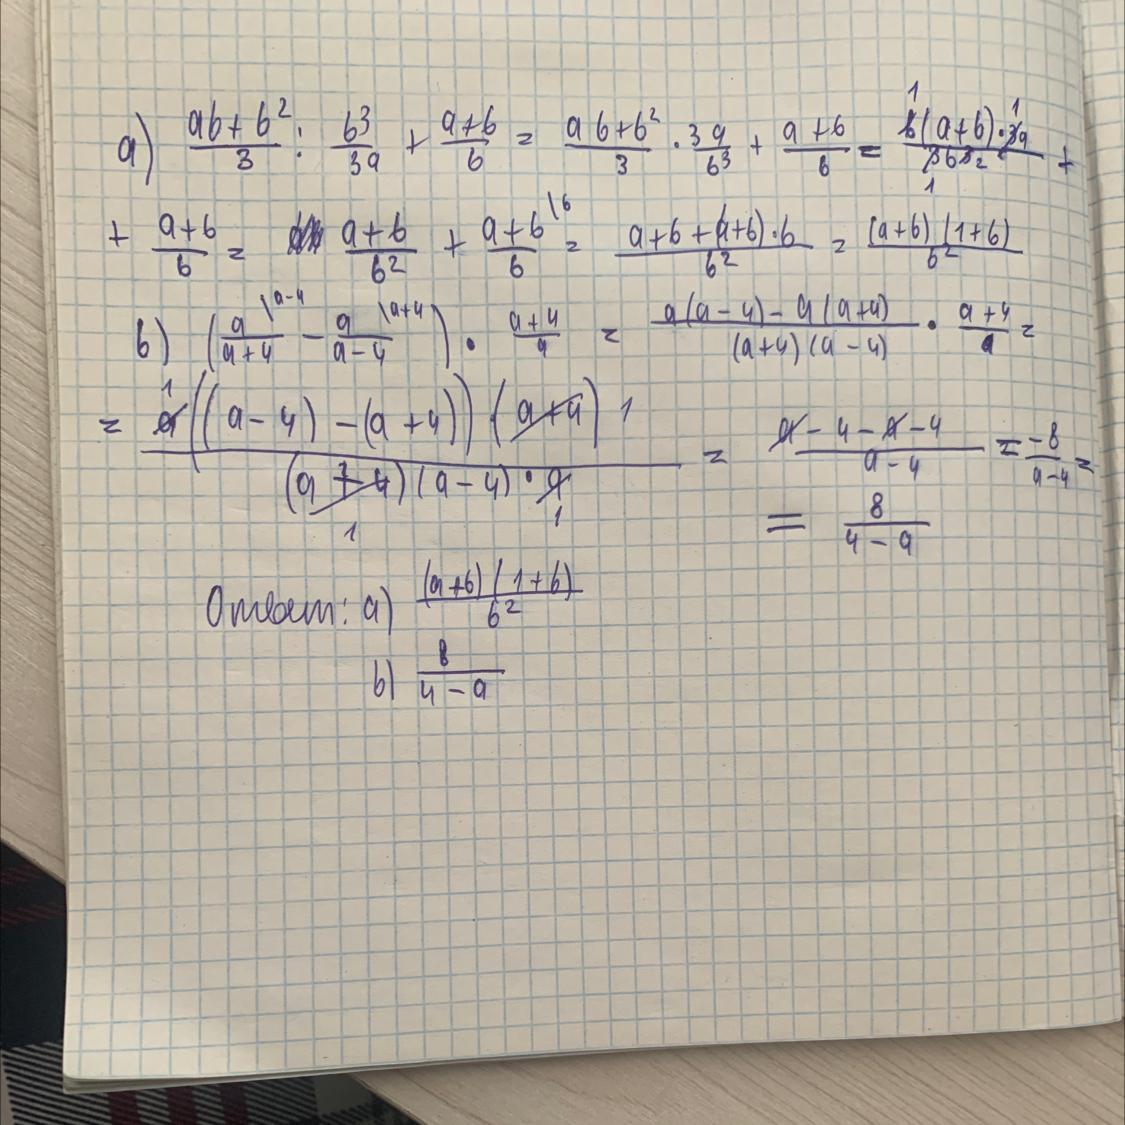 а) (ab+b²)/3 : b³/3a + (a+b)/b = (ab+b²)/3 · 3a/b³ + (a+b)/b = b(a+b)·3a/3b³ +
+ (a+b)/b = (a+b)/b² + (a+b)/b \b = (a+b+(a+b)·b)/b² = (a+b)(1+b)/b²
b) (a/(a+4) \a-4 - a/(a-4) \a+4) · (a+4)/a = (a(a-4)-a(a+4))/((a+4)(a-4)) · (a+4)/a =
= a((a-4)-(a+4))(a+4)/((a+4)(a-4)·a) = (a-4-a-4)/(a-4) = -8/(a-4) =
= 8/(4-a)
Ответ: а) (a+b)(1+b)/b²
b) 8/(4-a)